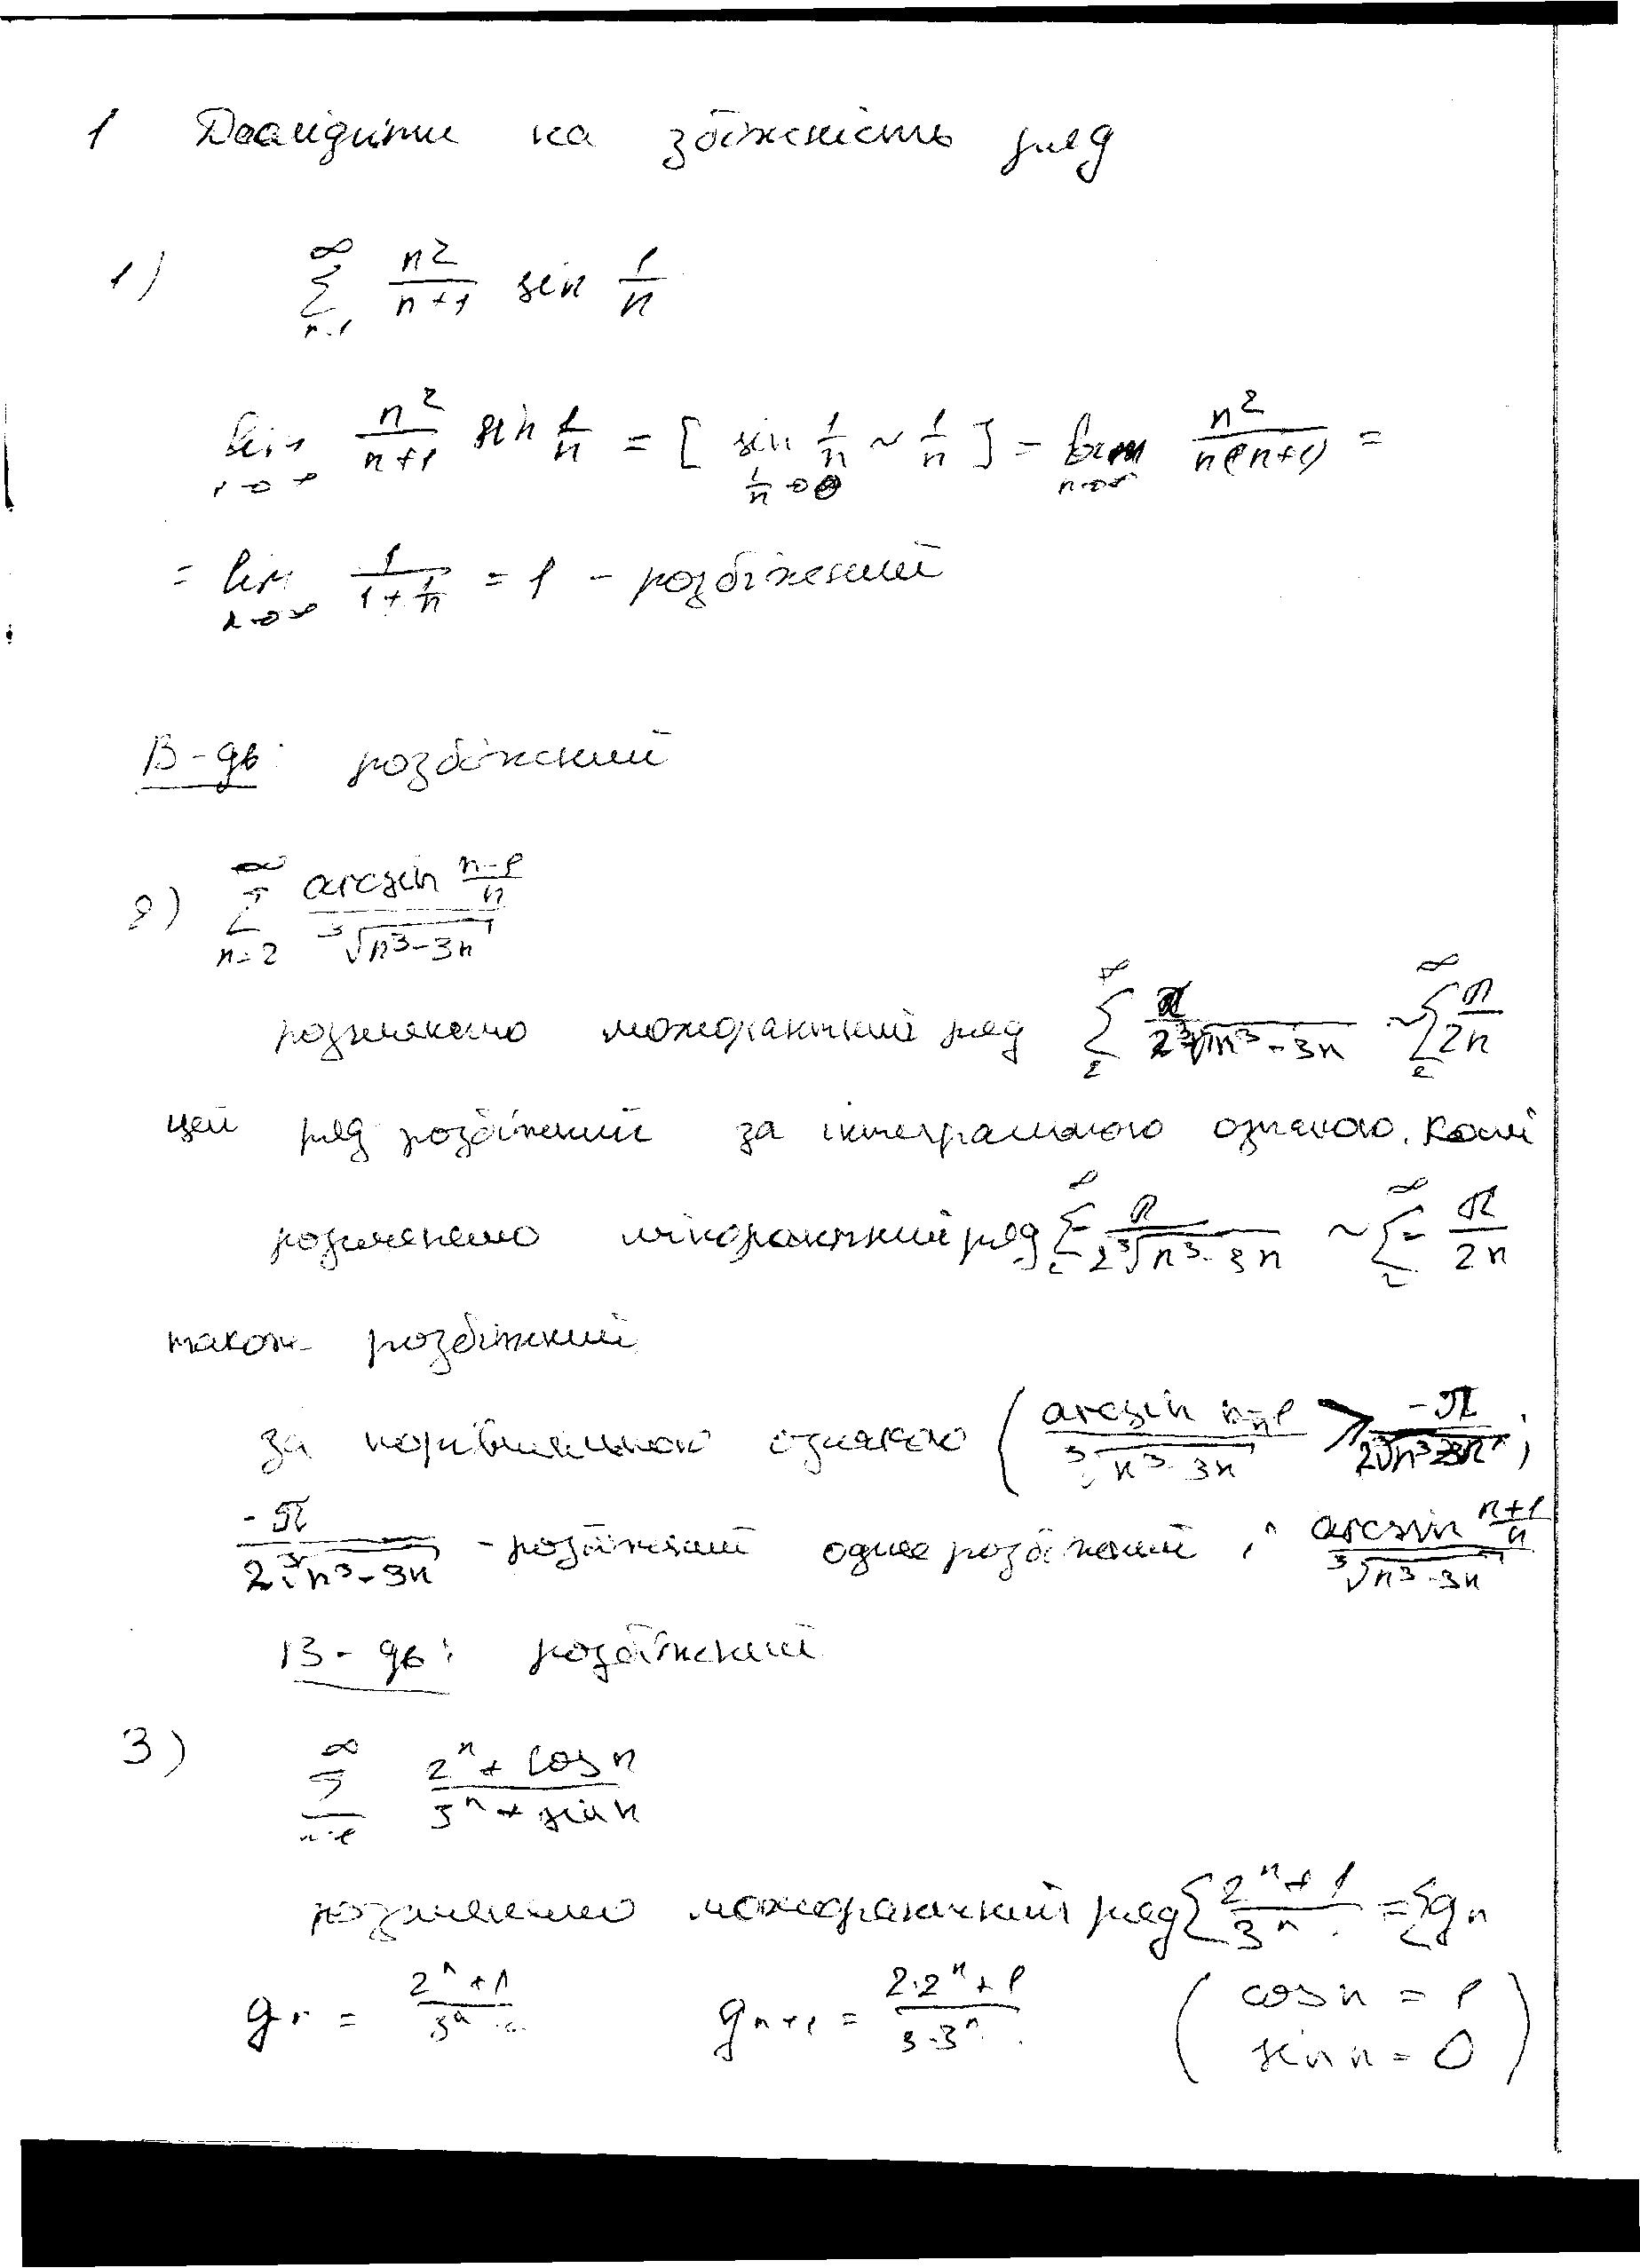 1 Дослідити на збіжність ряд
1) ∞ Σ n=1 n²/(n+1) sin 1/n
lim n→∞ n²/(n+1) sin 1/n = [ sin 1/n ~ 1/n ] 1/n→0 = lim n→∞ n²/(n(n+1)) =
= lim n→∞ 1/(1+1/n) = 1 – розбіжний
В-дь: розбіжний
2) ∞ Σ n=2 arcsin (n-1)/n / ³√(n³-3n)
розглянемо мажорантний ряд ∞ Σ 2 π/(2³√(n³-3n)) ~ ∞ Σ 2 π/(2n)
цей ряд розбіжний за інтегральною ознакою. Коші
розглянемо мінорантний ряд ∞ Σ 2 π/(2³√(n³-3n)) ~ ∞ Σ 2 - π/(2n)
також розбіжний
за порівняльною ознакою ( arcsin (n-1)/n / ³√(n³-3n) > -π/(2³√(n³-3n)) ;
-π/(2³√(n³-3n)) - розбіжний отже розбіжний і arcsin (n+1)/n / ³√(n³-3n)
В-дь: розбіжний
3) ∞ Σ n=1 (2ⁿ + cos n)/(3ⁿ + sin n)
розглянемо мажорантний ряд Σ (2ⁿ+1)/3ⁿ = Σ gn
gn = (2ⁿ+1)/3ⁿ gn+1 = (2·2ⁿ+1)/(3·3ⁿ) ( cos n = 1 sin n = 0 )